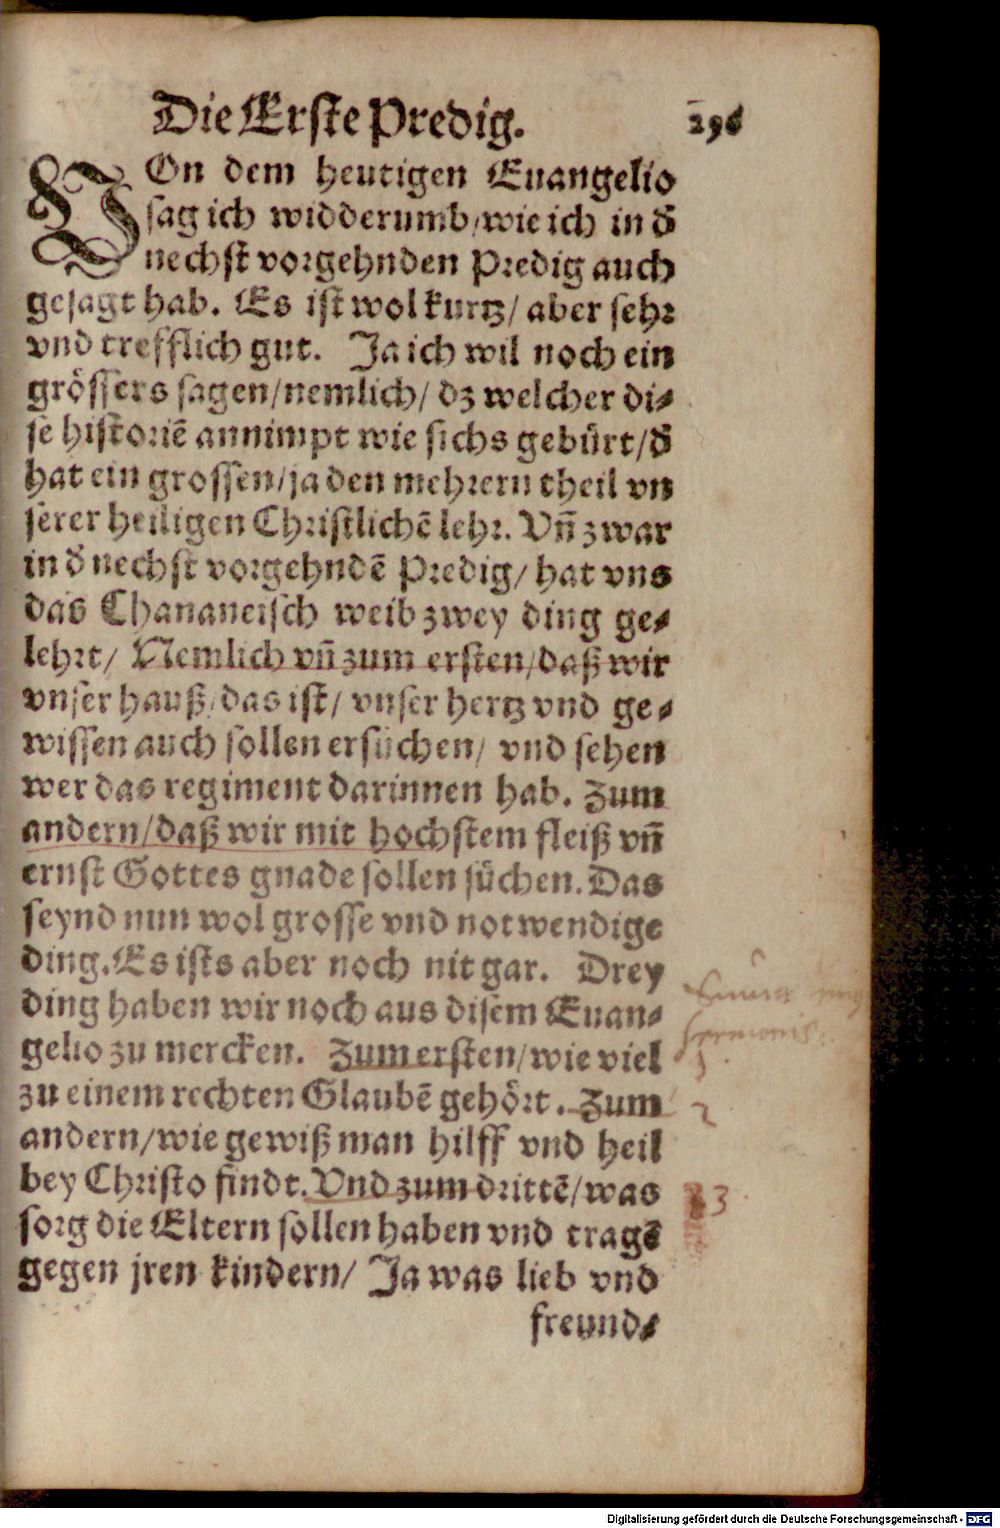 Die Erste Predig. 296
VOn dem heutigen Euangelio
sag ich widderumb/wie ich in d̾
nechst vorgehnden Predig auch
gesagt hab. Es ist wol kurtz/ aber sehr
vnd trefflich gut. Ja ich wil noch ein
grössers sagen/nemlich/ dz welcher di⸗
se historiē annimpt wie sichs gebürt/d̾
hat ein grossen/ja den mehrern theil vn
serer heiligen Christlichē lehr. Vn̄ zwar
in d̾ nechst vorgehndē Predig/ hat vns
das Chananeisch weib zwey ding ge⸗
lehrt/ Nemlich vn̄ zum ersten/daß wir
vnser hauß/das ist/ vnser hertz vnd ge⸗
wissen auch sollen ersuchen/ vnd sehen
wer das regiment darinnen hab. Zum
andern/daß wir mit hochstem fleiß vn̄
ernst Gottes gnade sollen süchen. Das
seynd nun wol grosse vnd notwendige
ding. Es ists aber noch nit gar. Drey
ding haben wir noch aus disem Euan⸗
gelio zu mercken. Zum ersten/wie viel
zu einem rechten Glaubē gehört. Zum
andern/wie gewiß man hilff vnd heil
bey Christo findt. Vnd zum drittē/was
sorg die Eltern sollen haben vnd tragē
gegen jren kindern/ Ja was lieb vnd
freund⸗
sermonis:
1
2
3
Digitalisierung gefördert durch die Deutsche Forschungsgemeinschaft - DFG